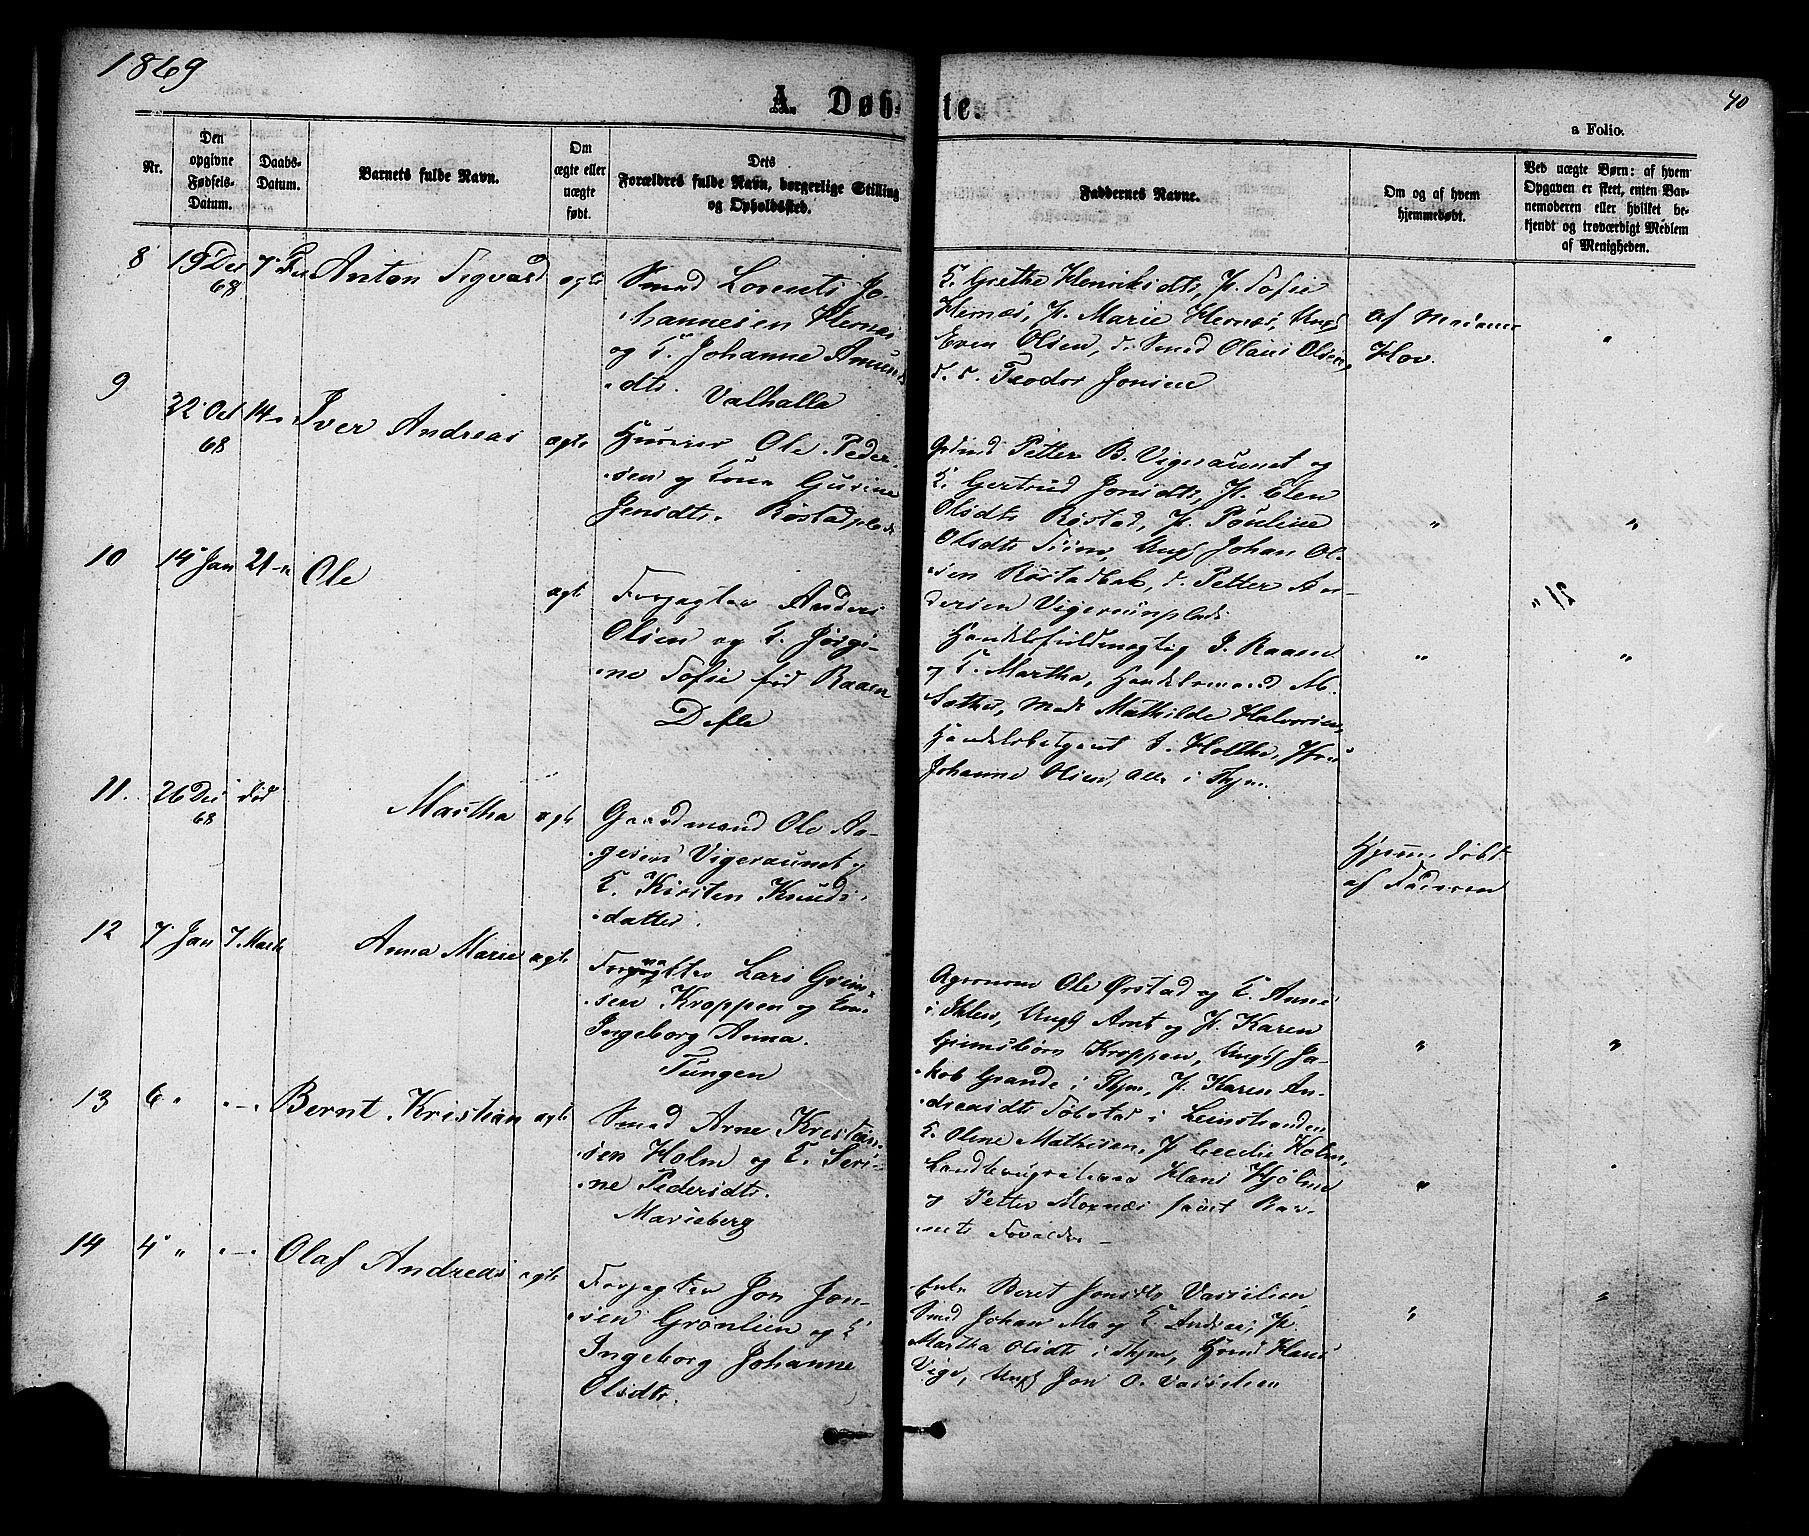 1869
40
A. Døb-
te.
a Folio.
Nr.
Den opgivne Fødsels-Datum.
Daabs-Datum.
Barnets fulde Navn.
Om ægte eller uægte født.
Dets Forældres fulde Navn, borgerlige Stilling og Opholdssted.
Faddernes Navne.
Om og af hvem hjemmedøbt.
Ved uægte Børn: af hvem Opgaven er skeet, enten Barnemoderen eller hvilket bekjendt og troværdigt Medlem af Menigheden.
8 19 Des 68 7 Feb Anton Sigvard ægte
Smed Lorents Jo-
hannesen Hernæs
og K. Johanne Amun-
dts.
Valhalla
K. Grethe Henriksdts, P. Sofie
Hernæs, P. Marie Hernæs, Ungk
Even Olsen, d. Smed Olaus Olsen,
d. d. Teodor Jonsen
Af Mariane
Hov.
9 22 Oct 68 14 - Iver Andreas ægte
Husmand Ole Peder-
sen og Kone Gurine
Jensdts. Røstadplads
Petter B. Vigeraunet og
K. Gertrud Jonsdts, P. Elen
Olsdts Røstad, P. Pouline
Olsdts Tiim, Ungk Johan Ol-
sen Røstadbak, d. Petter An-
dersen Vigeraunplads
" "
10 14 Jan 21 - Ole ægte
Forpagter Anders
Olsen og K. Jørgi-
ne Sofie fød Raaen
Defle
Handelsfuldmægtig J. Raaen
og K. Martha, Handelsmand M.
Sæther, Mad. Mathilde Halvorsen,
Handelsbetjent J. Holthe, Jfru
Johanne Olsen, Alle i Thjm.
" "
11. 26 Des 68 død Martha ægte
Gaardmand Ole Aa-
gesen Vigeraunet og
K. Kirsten Knuds-
datter.
Hjemmedøbt
af Faderen
12 7 Jan 7. Marts Anna Marie ægte
Forpagter Lars Grim-
sen Kroppen og Kone
Ingeborg Anna.
Tungen
Agronom Ole Ørstad og K. Anne
i Ihlen, Ungk Arnt og P. Karen
Grimsbørn Kroppen, Ungk Ja-
kob Grande i Thjm, P. Karen An-
dreasdts Tøbstad i Leinstranden
" "
13 6 " - Bernt Kristian ægte
Smed Arne Kristian-
sen Holm og K. Seri-
ne Pedersdts.
Marieberg
K. Oline Mathisen, P. Cecilie Holm,
Hans Hjølme
og Petter Moxnæs samt Bar-
nets Forældre
" "
14 4 " - Olaf Andreas ægte
Forpagter Jon Jon-
sen Grønlien og K
Ingeborg Johanne
Olsdts.
Enke Beret Jonsdts Vasselien,
Smed Johan Mo og K Andrea, P.
Martha Olsdts i Thjm, Hans
Vige, Ungk Jon O. Vasselien
" "